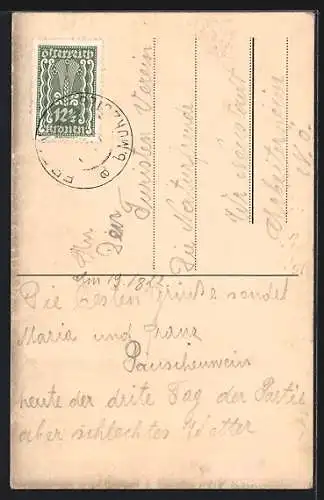 österreich
12½
kronen
An
Den
Turisten Verein
Die Naturfreunde
Wr Neustadt
N.Ö.
Am 19. 8 22
Die besten Grüße sendet
Maria und Franz
Pauschenwein
heute der drite Tag der Partie
aber schlechtes Wetter